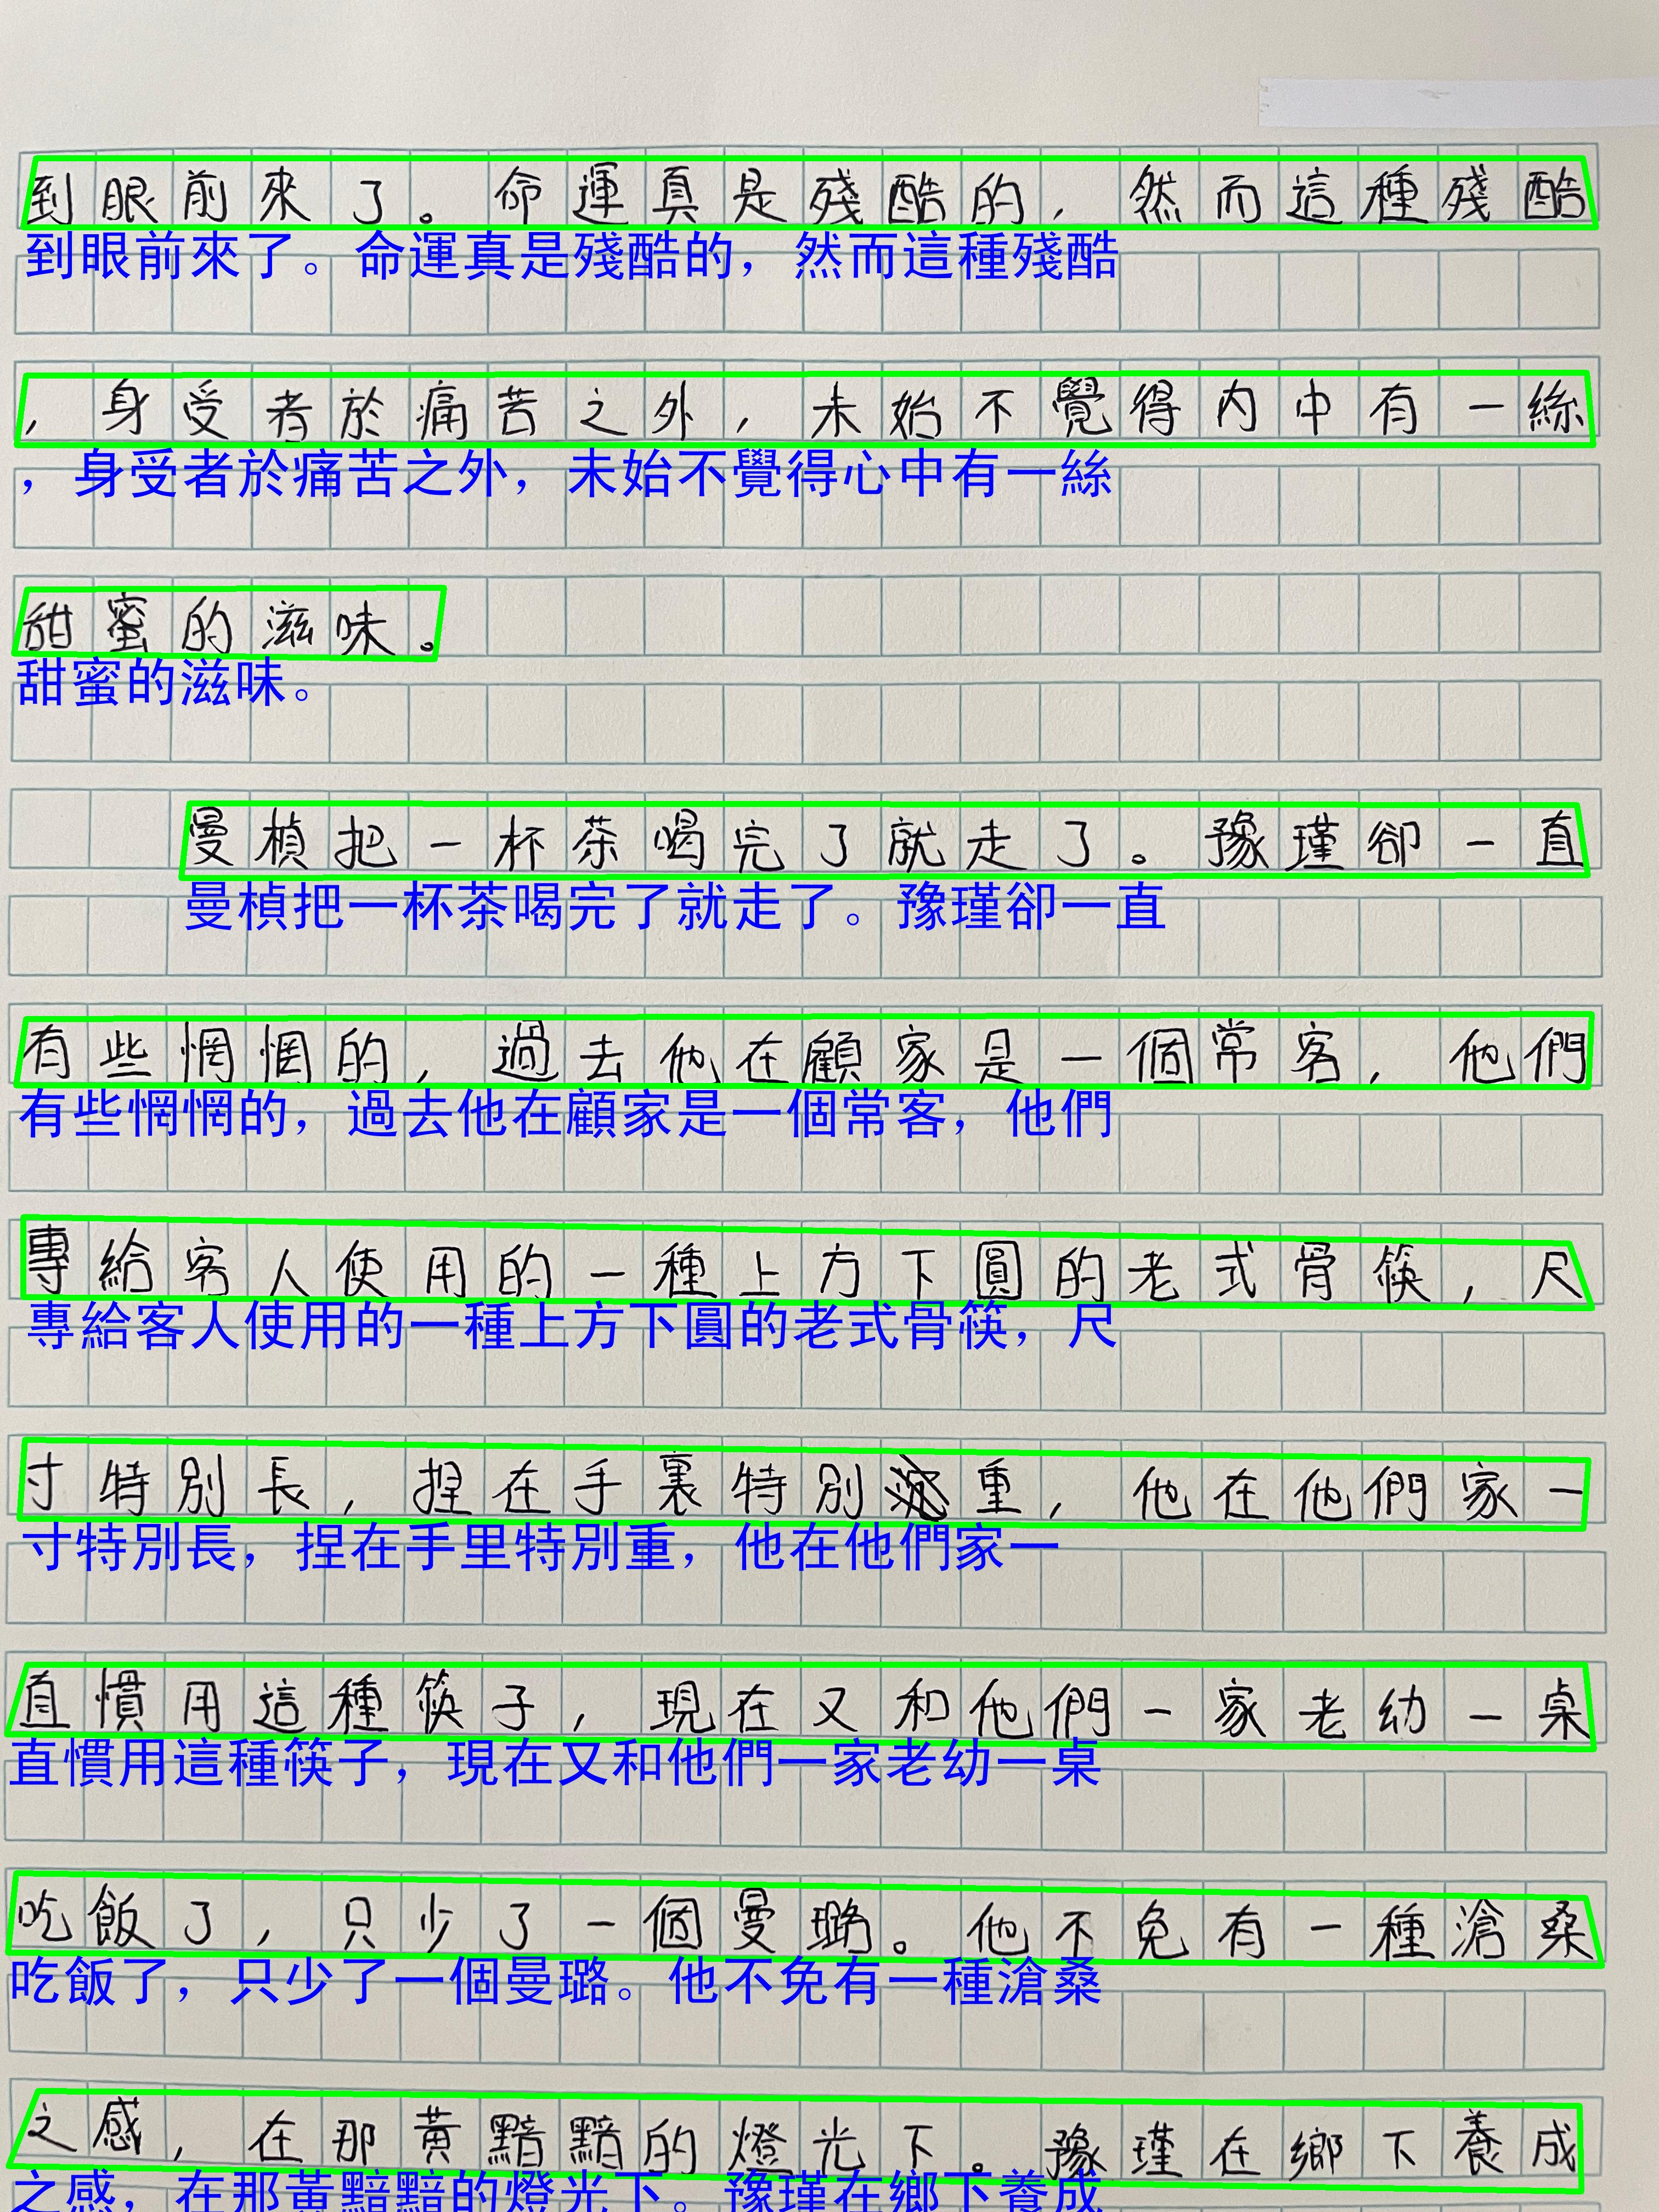 到眼前來了。命運真是殘酷的，然而這種殘酷
到眼前來了。命運真是殘酷的，然而這種殘酷
，身受者於痛苦之外，未始不覺得內中有一絲
，身受者於痛苦之外，未始不覺得心中有一絲
甜蜜的滋味。
甜蜜的滋味。
曼楨把一杯茶喝完了就走了。豫瑾卻一直
曼楨把一杯茶喝完了就走了。豫瑾卻一直
有些惘惘的，過去他在顧家是一個常客，他們
有些惘惘的，過去他在顧家是一個常客，他們
專給客人使用的一種上方下圓的老式骨筷，尺
專給客人使用的一種上方下圓的老式骨筷，尺
寸特別長，捏在手裏特別重，他在他們家一
寸特別長，捏在手里特別重，他在他們家一
直慣用這種筷子，現在又和他們一家老幼一桌
直慣用這種筷子，現在又和他們一家老幼一桌
吃飯了，只少了一個曼璐。他不免有一種滄桑
吃飯了，只少了一個曼璐。他不免有一種滄桑
之感，在那黃黯黯的燈光下。豫瑾在鄉下養成
之感，在那黃黯黯的燈光下。豫瑾在鄉下養成